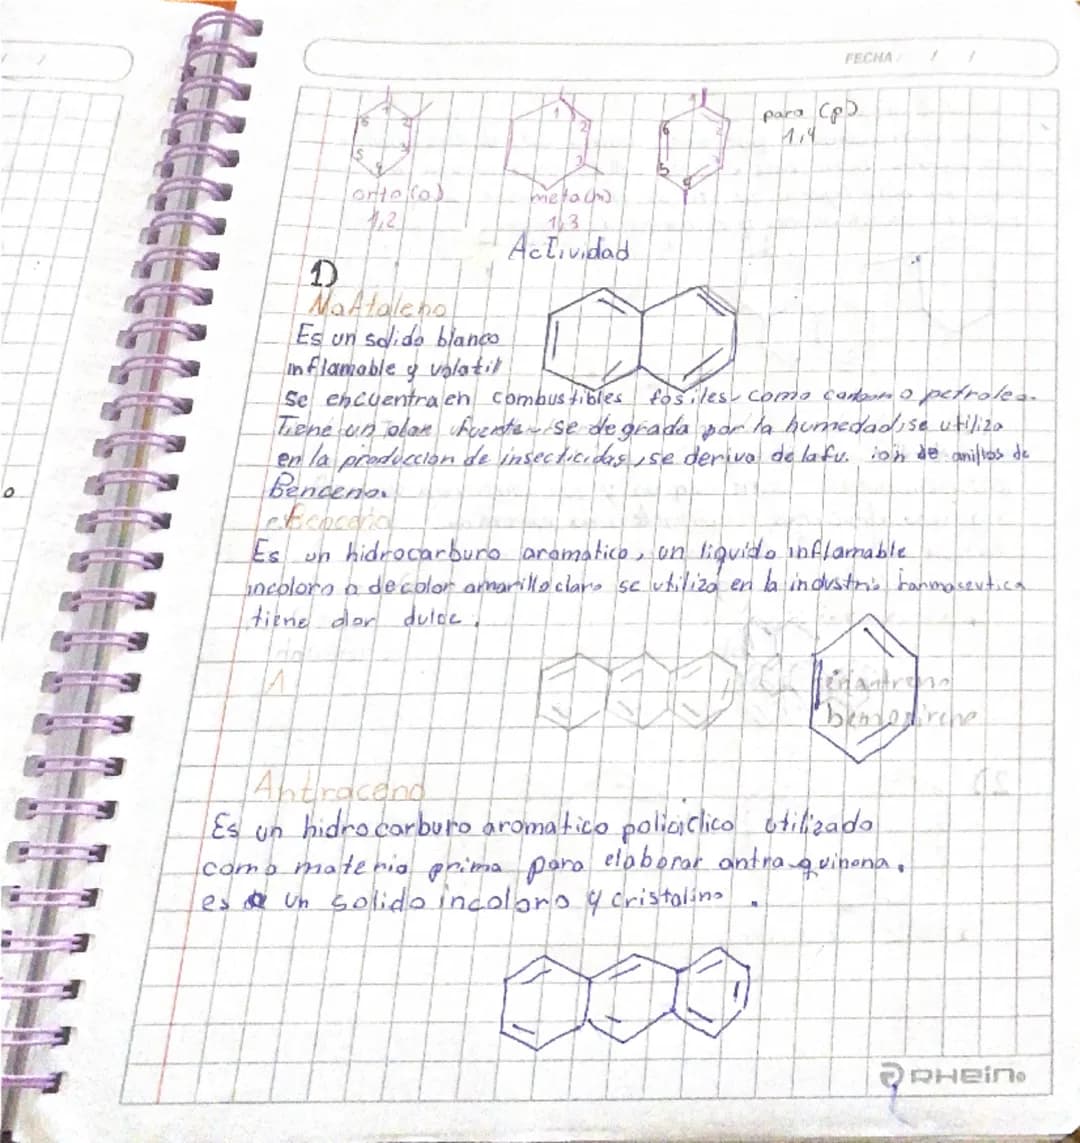 FECHA / /
para (p)
1,4
1 2 3 4 5 6
1 2 3
1 2 3 4 5 6
orto (o) meta (m)
1,2 1,3
Actividad
1)
Naftaleno
Es un solido blanco
inflamable y volatil
se encuentra en combustibles fosiles como carbon o petroleo.
Tiene un olor fuerte, se degrada por la humedad, se utiliza
en la produccion de insecticidas, se deriva de la fu ion de anillos de
Benceno.
Benceno
Es un hidrocarburo aromatico, un liquido inflamable
incoloro o de color amarillo claro se utiliza en la industria farmaceutica
tiene olor dulce.
fenantreno
benzopireno
Antraceno
Es un hidrocarburo aromatico policiclico utilizado
como materia prima para elaborar antraquinona.
es un solido incoloro y cristalino.
RHein